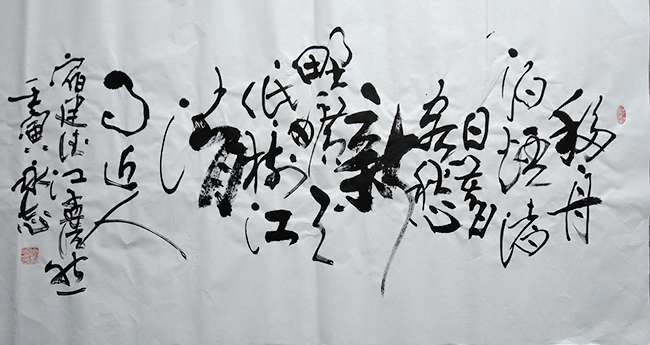 移舟
泊煙渚
日暮
客愁
新
野曠天
低樹江
清
月近人
宿建德江孟浩然
壬寅永志